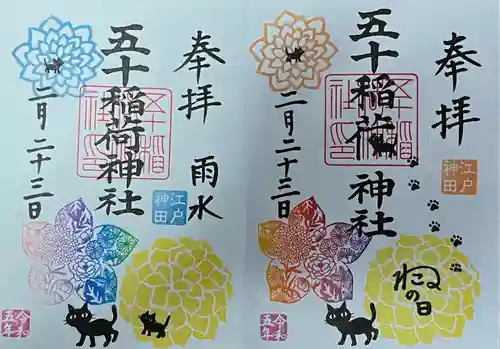 奉拝 雨水
五十稲荷神社
二月二十三日
江戸
神田
令和
五年
奉拝
五十稲荷神社
二月二十三日
江戸
神田
ねこの日
令和
五年